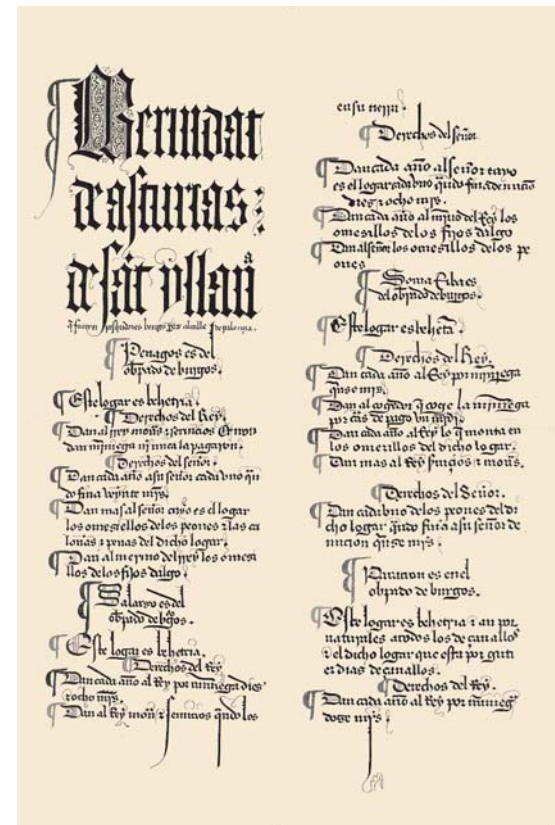 Merindat
de asturias:
de sãt yllanª
Penagos es del
obpado de burgos.
Este logar es behetria.
Derechos del Rey.
Dan al rey moñ. τ seruicios τ non
dan miniega ni nunca la pagaron.
Derechos del señor.
Dan cada año a su señor cada vno qñ
do fina veynte mrs.
Dan mas al señor cuyo es el logar
los omesiellos delos peones τ las ca
lonas τ penas del dicho logar.
Dan al merino del rey los omesi
llos delos fijos dalgo.
es del
obpado de bgos.
Este logar es behetria.
Derechos del Rey
Dan cada año al Rey por miniega dies
τ ocho mrs.
Dan al Rey moñ. τ seruicios qñdo los
en su tierra.
Derechos del señor
Dan cada año al señor cuyo
es el logar cada vno qñdo fina
dies τ ocho mrs.
Dan cada año al mino del Rey los
omesillos delos fijos dalgo
Dan al señor los omesillos delos pe
ones
Soma
del obpado de burgos.
Este logar es behetª.
Derechos del Rey.
Dan cada año al Rey por miniega
qinse mrs.
Dan al cogedor q coge la miniega
por
Dan cada año al Rey lo q monta en
los omesillos del dicho logar.
Dan mas al Rey τ moñ.
Derechos del Señor.
Dan cada vno delos peones del di
cho logar qñdo fina a su señor de
nincion qinse mrs.
es en el
obpado de burgos.
Este logar es behetria τ an por
naturales a todos los de cauallos
τ el dicho logar que esta por
dias de cauallos.
Derechos del Rey.
Dan cada año al Rey por minieg
dose mrs.